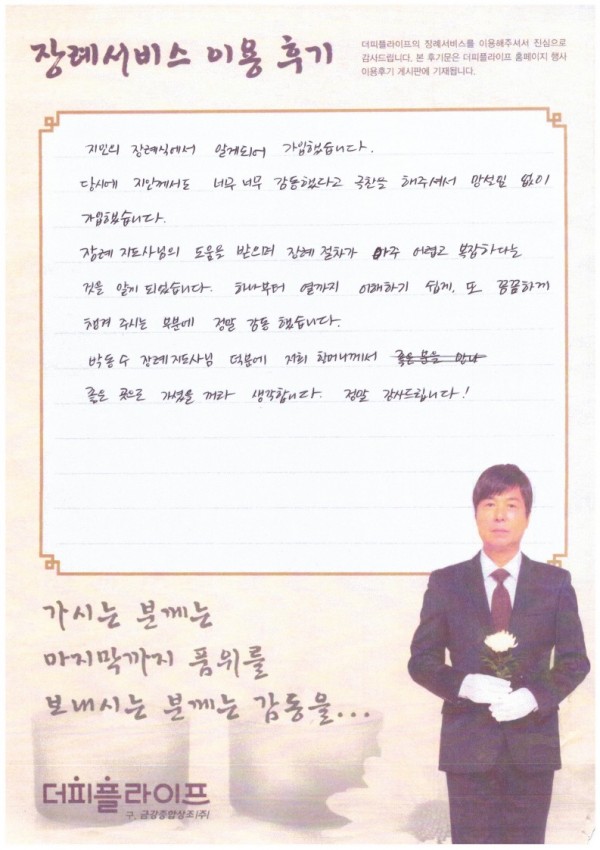 장례서비스 이용 후기
더피플라이프의 장례서비스를 이용해주셔서 진심으로
감사드립니다. 본 후기문은 더피플라이프 홈페이지 행사
이용후기 게시판에 기재됩니다.
지인의 장례식에서 알게되어 가입했습니다.
당시에 지인께서도 너무 너무 감동했다고 극찬을 해주셔서 망설임 없이
가입했습니다.
장례 지도사님의 도움을 받으며 장례 절차가 아주 어렵고 복잡하다는
것을 알게 되었습니다. 하나부터 열까지 이해하기 쉽게, 또 꼼꼼하게
챙겨 주시는 부분에 정말 감동 했습니다.
박동수 장례지도사님 덕분에 저희 할머니께서 좋은 분을 만나
좋은 곳으로 가셨을 꺼라 생각합니다. 정말 감사드립니다!
가시는 분께는
마지막까지 품위를
보내시는 분께는 감동을...
더피플라이프
구. 금강종합상조(주)